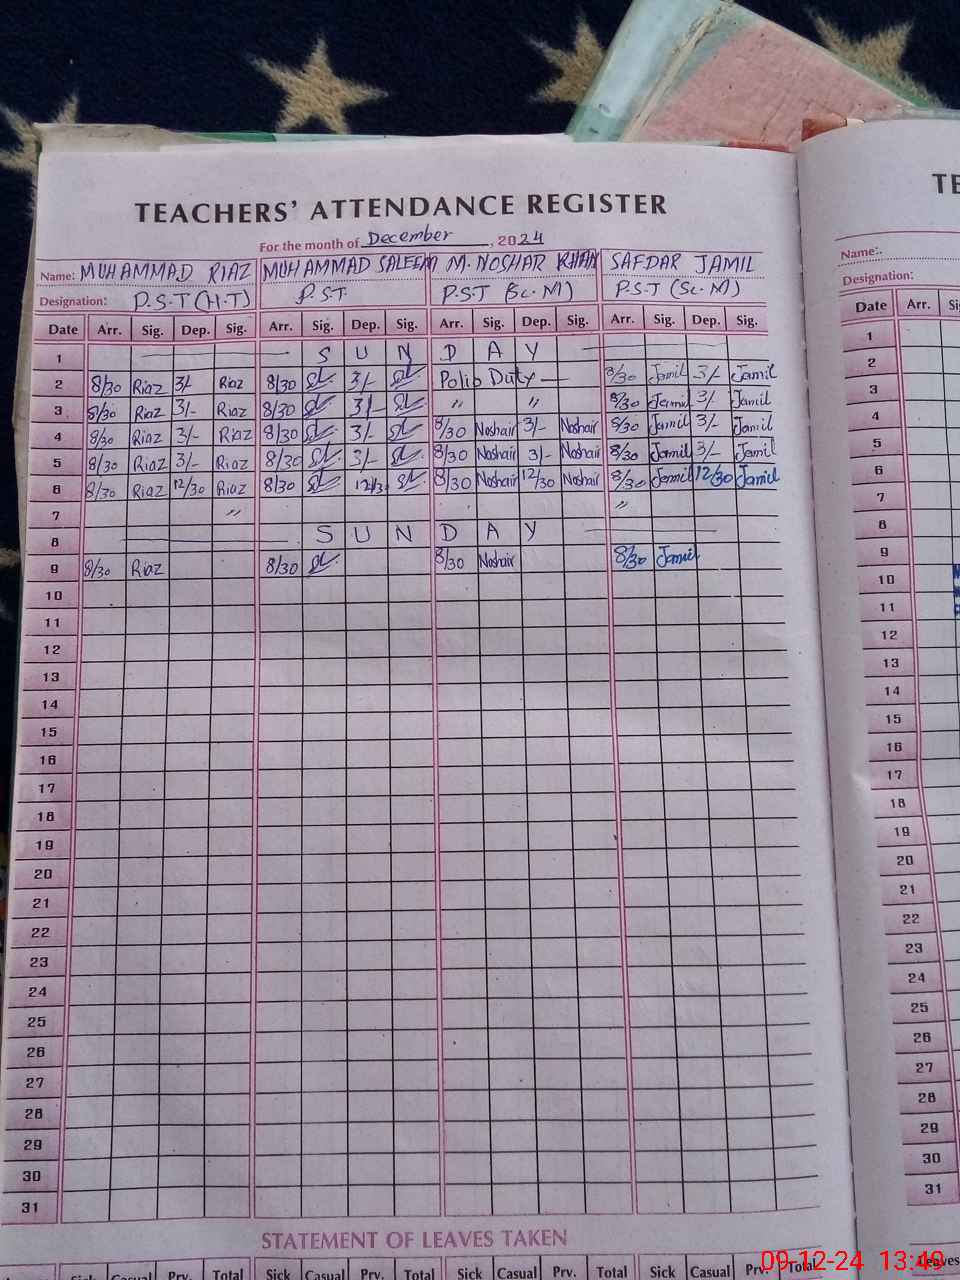 TEACHERS' ATTENDANCE REGISTER
For the month of December, 2024
Name: MUHAMMAD RIAZ MUHAMMAD SALEEM M. NOSHAR KHAN SAFDAR JAMIL
Designation: P.S.T (H.T) P.S.T P.S.T (Sc.M) P.S.T (Sc.M)
Date Arr. Sig. Dep. Sig. Arr. Sig. Dep. Sig. Arr. Sig. Dep. Sig. Arr. Sig. Dep. Sig.
1 S U N D A Y
2 8/30 Riaz 3/- Riaz 8/30 3/- Polio Duty — 8/30 Jamil 3/- Jamil
3 8/30 Riaz 3/- Riaz 8/30 3/- " " 8/30 Jamil 3/- Jamil
4 8/30 Riaz 3/- Riaz 8/30 3/- 8/30 Noshair 3/- Noshair 8/30 Jamil 3/- Jamil
5 8/30 Riaz 3/- Riaz 8/30 3/- 8/30 Noshair 3/- Noshair 8/30 Jamil 3/- Jamil
6 8/30 Riaz 12/30 Riaz 8/30 12/3 8/30 Noshair 12/30 Noshair 8/30 Jamil 12/30 Jamil
7 " "
8 S U N D A Y
9 8/30 Riaz 8/30 8/30 Noshair 8/30 Jamil
10
11
12
13
14
15
16
17
18
19
20
21
22
23
24
25
26
27
28
29
30
31
STATEMENT OF LEAVES TAKEN
Sick Casual Prv. Total Sick Casual Prv. Total Sick Casual Prv. Total Sick Casual Prv. Total
TE
Name:.
Designation:
Date Arr. S
1
2
3
4
5
6
7
8
9
10
11
12
13
14
15
16
17
18
19
20
21
22
23
24
25
26
27
28
29
30
31
Leaves
09-12-24 13:49